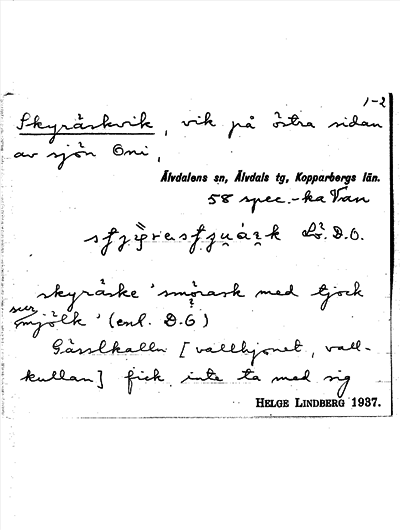 1-2
Skyråskvik, vik på östra sidan
av sjön Oni,
Älvdalens sn, Älvdals tg, Kopparbergs län.
58 spec.-ka Van
D.O.
skyråske 'smörask med tjock
sur
mjölk' (enl. D.O)
Gässlkalln [vallhjonet, vall-
kullan] fick inte ta med sig
HELGE LINDBERG 1937.